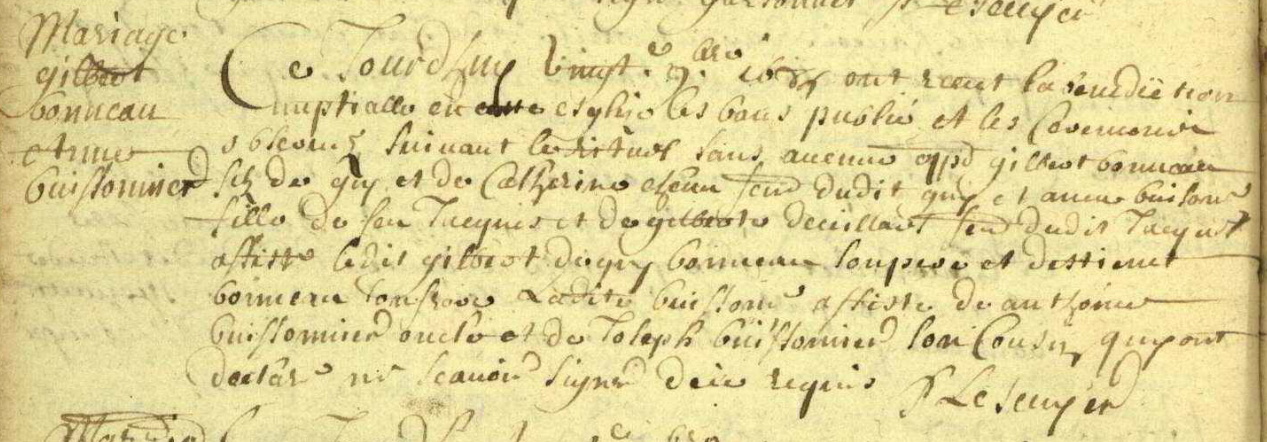 Mariage
gilbert
bonneau
et anne
buissonnier
Ce Jourdhuy vingt e 9bre ont receu la benediction
nuptialle en cette esglise les bans publié et les Ceremonie
observé suivant le rituel sans aucune oppõ gilbert bonneau
filz de guy et de Catherine fem dudit guy et anne buisonr
fille de feu Jacques et de gilberte deuillard fem dudit Jacques
assisté ledit gilbert de guy bonneau son pere et destienne
bonneau son frere Ladite buissonr assisté de anthoine
buissonnier oncle et de Joseph buissonnier son Cousin qui ont
declaré ne scavoir signer de ce requis